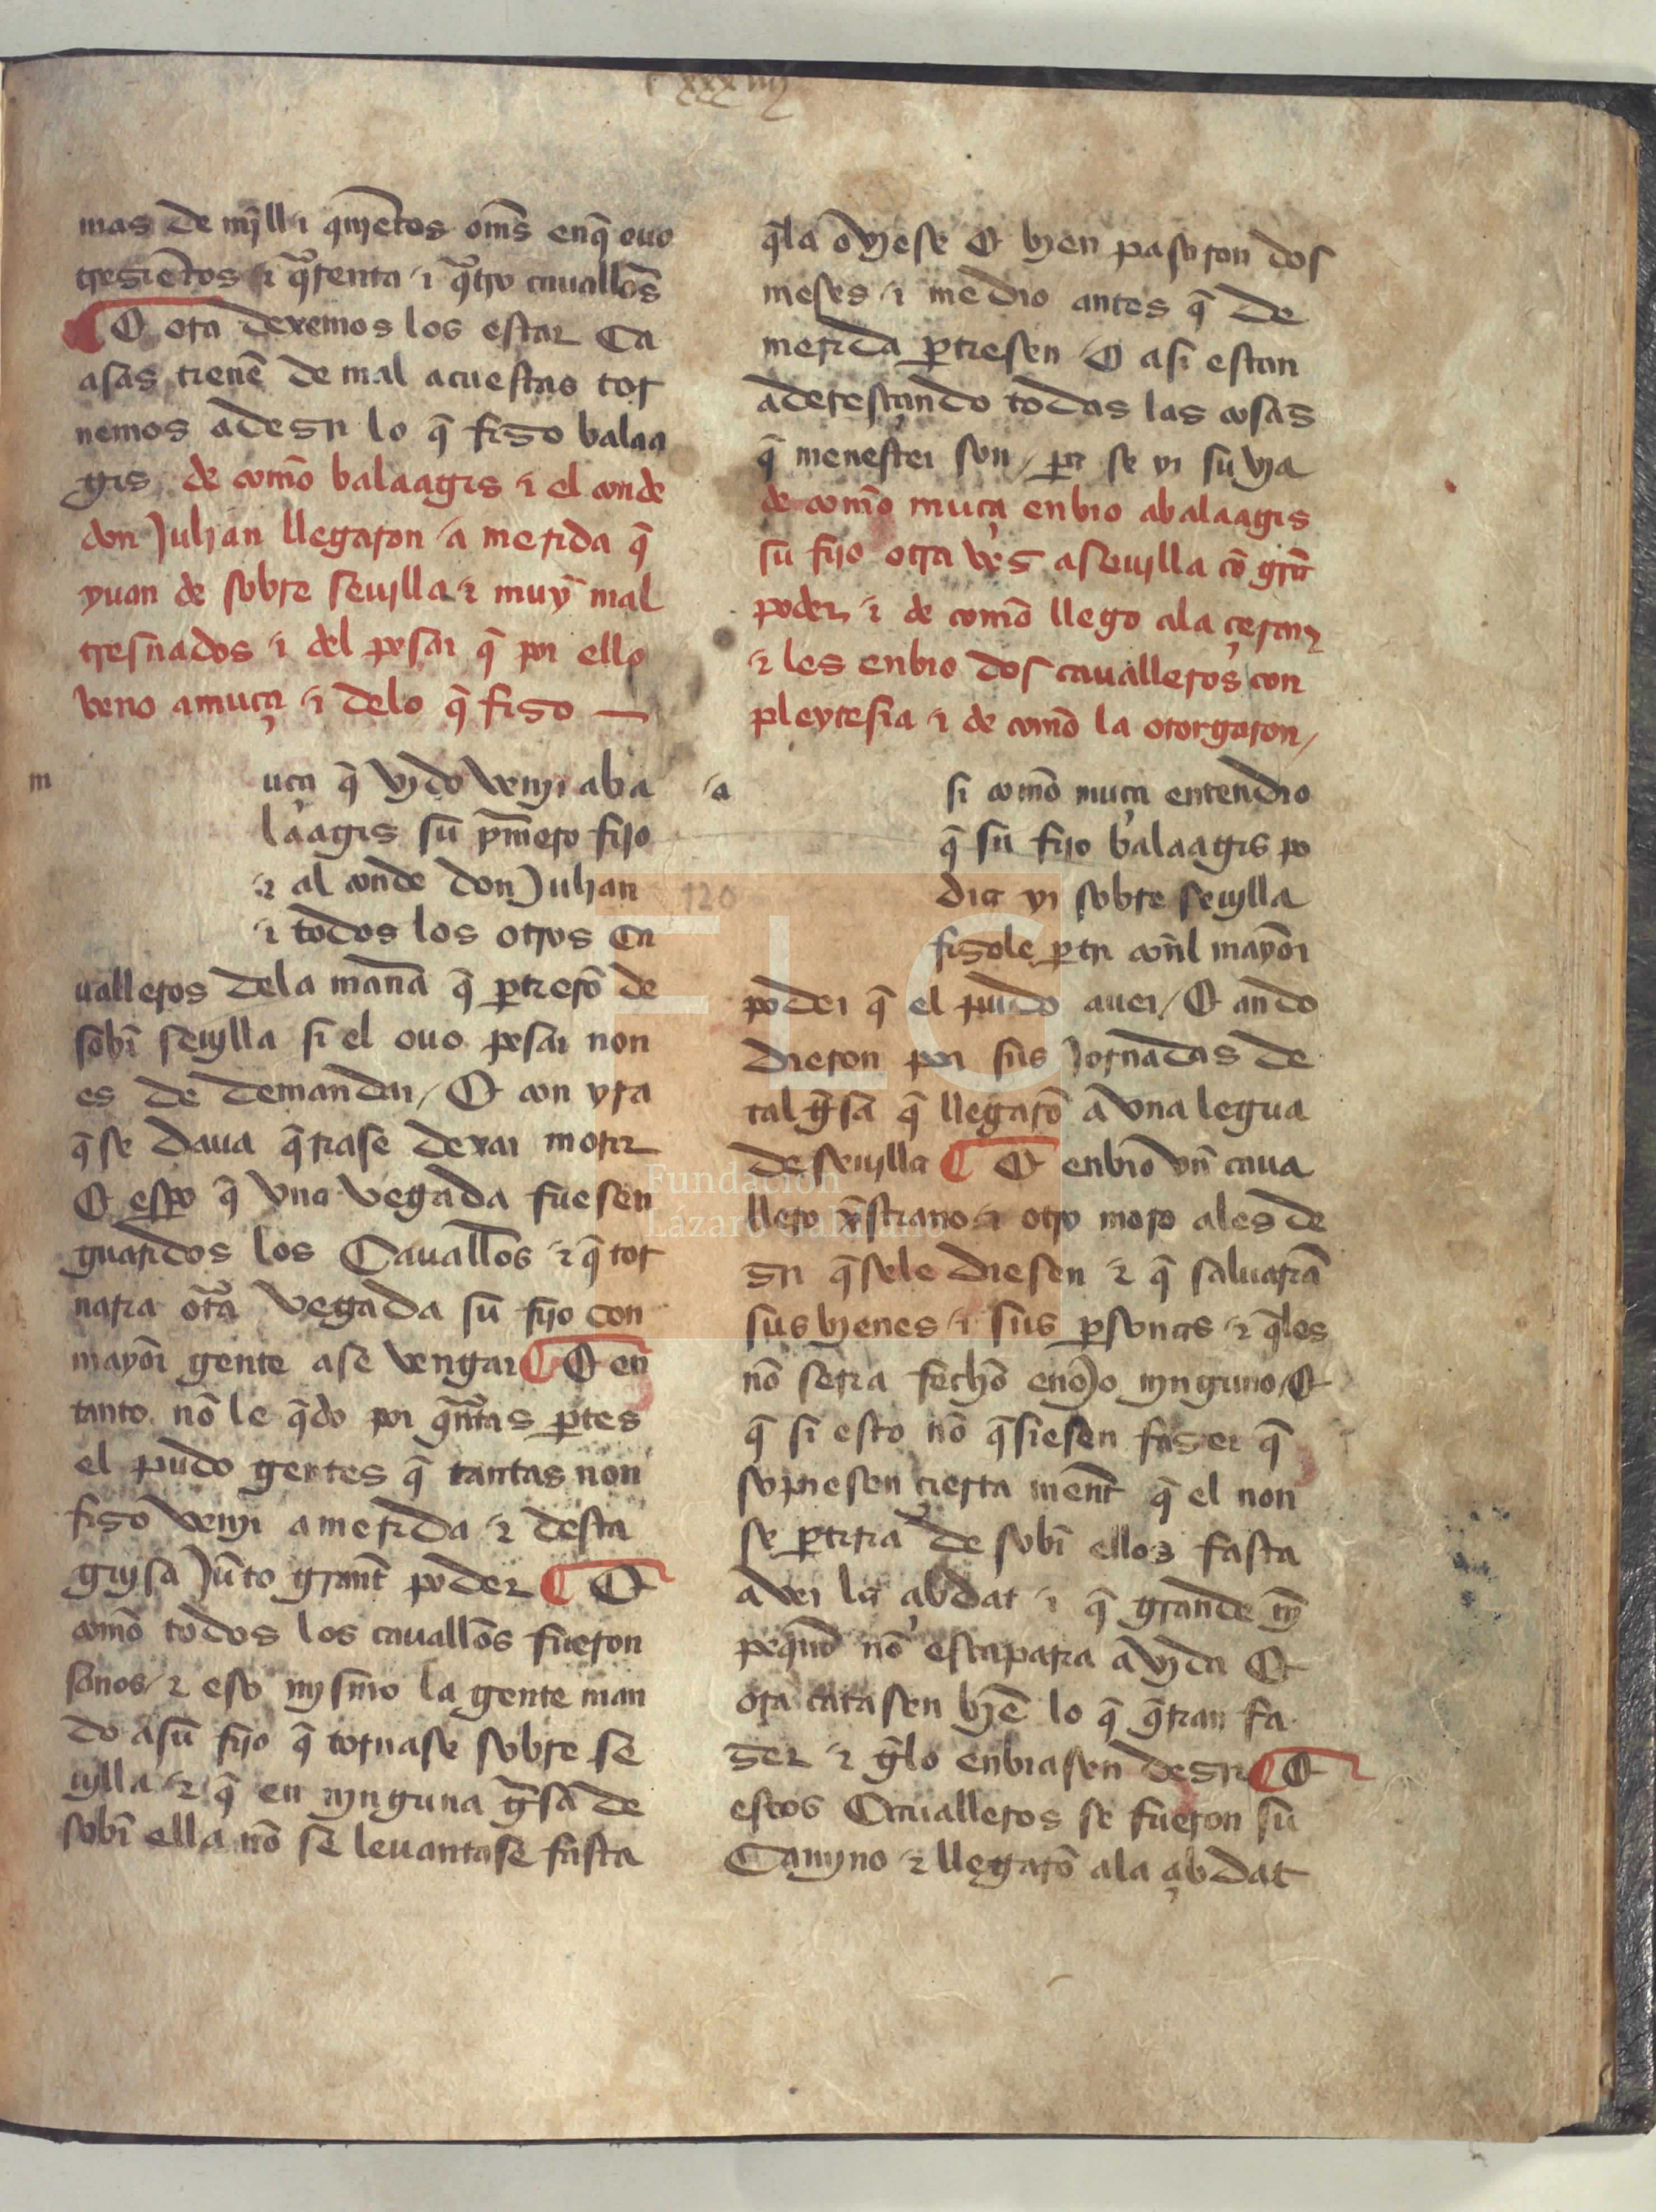 mas de mjll ⁊ qnjētos om̄s enq̄ ouo
tresiētos ⁊ qͣrenta ⁊ qͣtro cauallōs
¶ E ora dexemos los estar Ca
asas tienē de mal acuestas tor
nemos adesir lo q̄ fiso balaa
gis de comō balaagis ⁊ el conde
don Julian llegaron a merida q̄
yuan de sobre seujlla ⁊ muy mal
tresnados ⁊ del pesar q̄ por ello
veno amuça ⁊ delo q̄ fiso
m uça q̄ vydo venjr aba
laagis su pͥmero fijo
⁊ al conde don Julian
⁊ todos los otros Ca
ualleros dela man̄a q̄ ꝑtierō de
sob̄ seujlla si el ouo pesar non
es de demandar / E con yra
q̄ se daua q̄riase dexar morir
E esꝑo q̄ vna vegada fuesen
guaridos los Cauallōs ⁊ q̄ tor
naria otͣ vegada su fijo con
mayor gente ase vengar ¶ E en
tanto nō le q̄do por qͣntas ꝑtes
el pudo gentes q̄ tantas non
fiso venjr amerida ⁊ desta
gujsa Jūto grant̄ poder ¶ E
comō todos los cauallōs fueron
sanos ⁊ eso mjsmo la gente man
do asu fijo q̄ tornase sobre se
ujlla ⁊ q̄ en njnguna gͥsa de
sob̄ ella nō se leuantase fasta
q̄la oviese E bien pasaron dos
meses ⁊ medio antes q̄ de
merida ꝑtiesen E asi estan
aderesçando todas las cosas
q̄ menester son / ꝑa se yr su vja
de comō muça enbio abalaagis
su fijo otra ves aseujlla cō grā
poder ⁊ de comō llego ala çercar
⁊ les enbio dos caualleros con
pleytesia ⁊ de comō la otorgaron /
a si comō muça entendio
q̄ su fijo balaagis po
dia yr sobre seujlla
fisole ꝑtir con̄l mayor
poder q̄ el pudo auer / E ando
dieron por sus Jornadas de
tal gͥsa q̄ llegarō a vna legua
de seujlla ¶ E enbio vn̄ caua
llero xͥstiano ⁊ otro moro ales de
sir q̄ sele diesen ⁊ q̄ saluariā
sus bienes ⁊ sus ꝑsonas ⁊ q̄les
nō seria fechō enoJo njnguno / E
q̄ si esto nō q̄siesen faser q̄
sopiesen çierta ment̄ q̄ el non
se ꝑtiria de sob̄ ellos fasta
aver la çibdat ⁊ q̄ grande nj̄
pequn̄o nō escaparia a vjda E
ora catasen bjē lo q̄ q̄rian fa
ser ⁊ q̄lo enbiasen desir ¶ E
estos Caualleros se fueron su
Camjno ⁊ llegarō ala çibdat
120
FLG
Fundación
Lázaro Galdiano